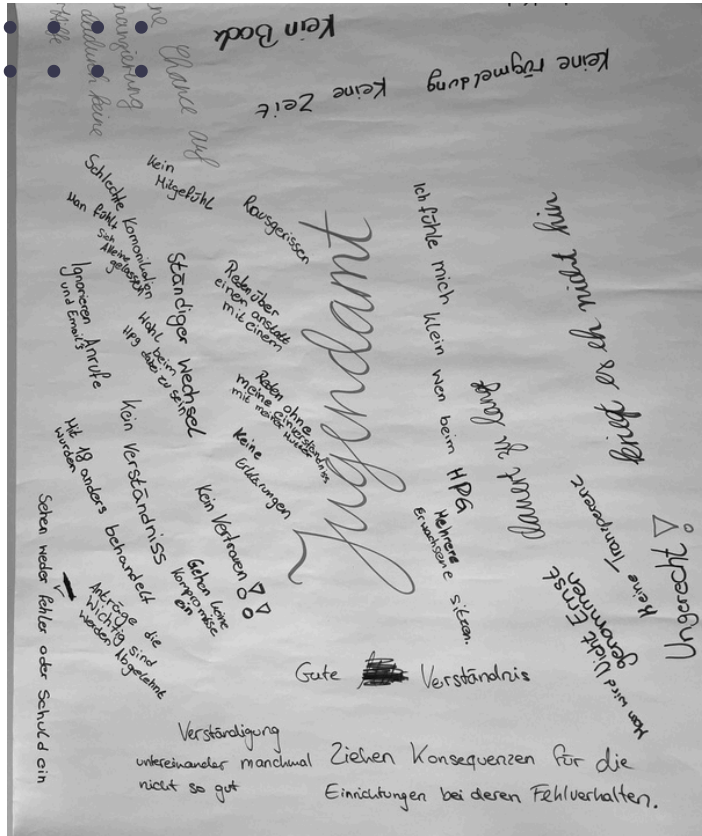 Kein Bock
Keine Zeit
Keine rügmeldung
Chance auf
nanzierung
dadurch keine
Kein
Mitgefühl
Rausgerissen
Schlechte Komonikation
Man fühlt
sich
Alleine
gelassen
Ignorieren Anrufe
und Email's
Ständiger Wechsel
Wahl beim
HPG dabei zu sein
Reden über
einen anstatt
mit einem
Reden ohne
meine einverständniss
mit meiner Mutter
Keine
Erklärungen
Kein Vertrauen!!
Kein Verständniss
Mit 18 anders behandelt
wurden
Gehen keine
Kompromisse
ein
Anträge die
Wichtig sind
werden Abgelehnt
Sehen weder Fehler oder Schuld ein
Jugendamt
Ich fühle mich klein wen beim HPG
Mehrere
Erwachsene sitzen.
dauert zu lange
kriegt es eh nicht hin
Keine Transparenz
Man wird Nicht Ernst
genommen
Ungerecht!
Gute Verständnis
Verständigung
untereinander manchmal
nicht so gut
Ziehen Konsequenzen für die
Einrichtungen bei deren Fehlverhalten.